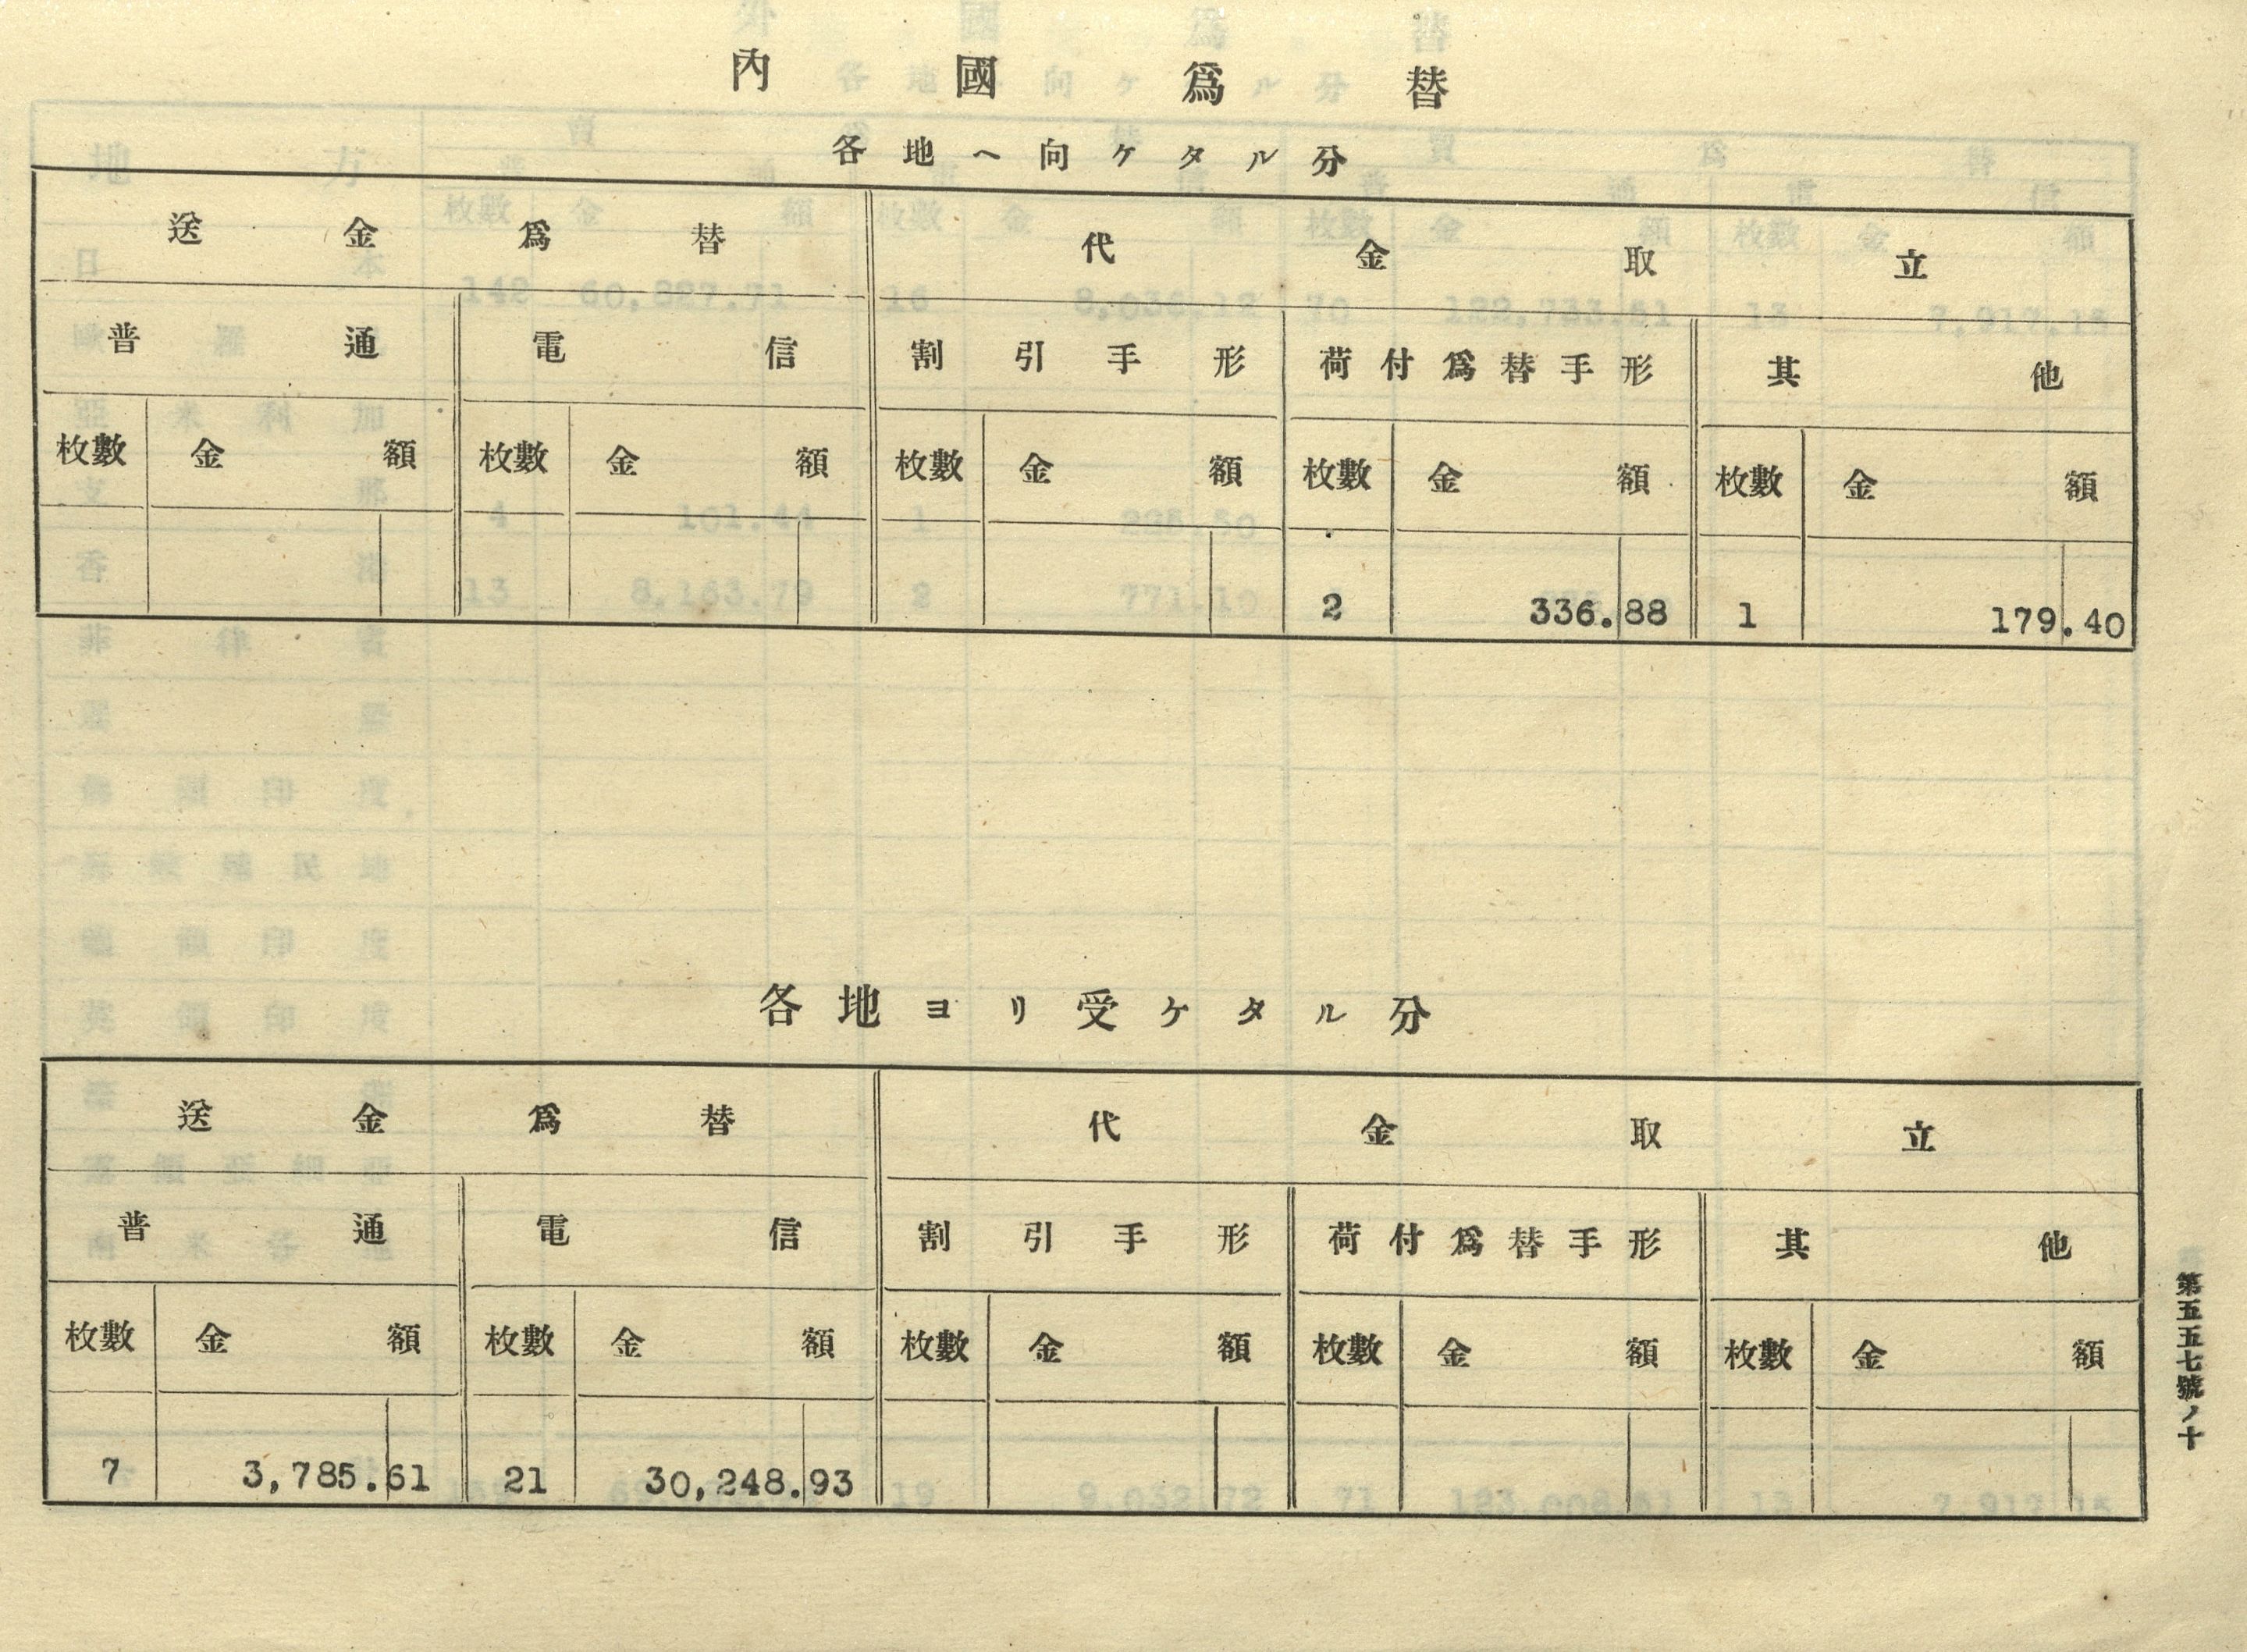 內國爲替
各地ヘ向ケタル分
送金爲替 代金取立
普通 電信 割引手形 荷付爲替手形 其他
枚數 金額 枚數 金額 枚數 金額 枚數 金額 枚數 金額
2 336.88 1 179.40
各地ヨリ受ケタル分
送金爲替 代金取立
普通 電信 割引手形 荷付爲替手形 其他
枚數 金額 枚數 金額 枚數 金額 枚數 金額 枚數 金額
7 3,785.61 21 30,248.93
第五五七號ノ十